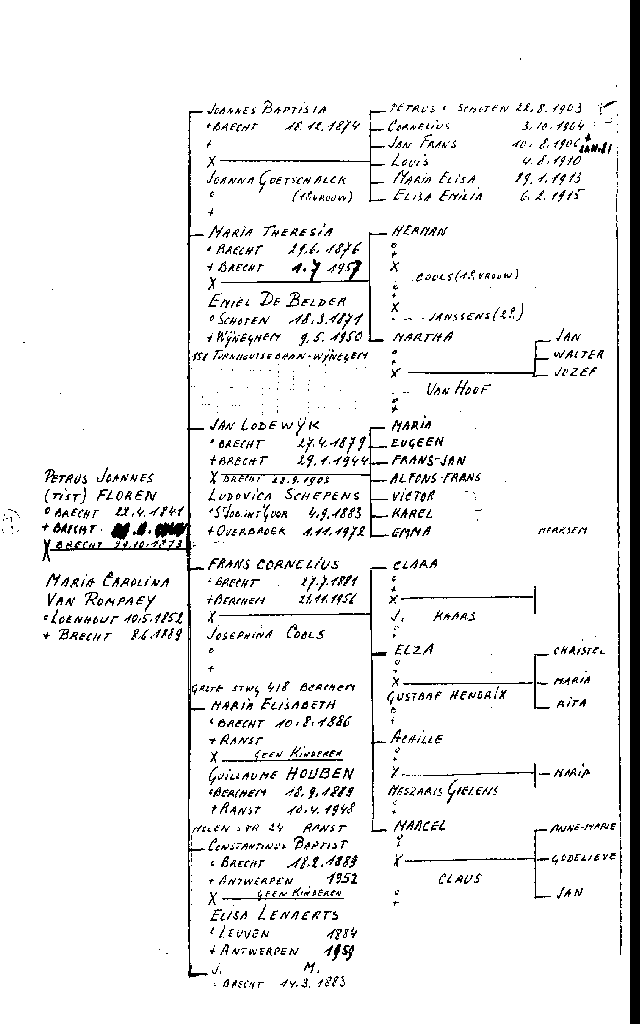 PETRUS JOANNES
(TIST) FLOREN
° BRECHT 22.4.1841
+ BRECHT
X BRECHT 29.10.1873
MARIA CAROLINA
VAN ROMPAEY
° LOENHOUT 10.5.1852
+ BRECHT 8.6.1889
JOANNES BAPTISTA
+ BRECHT 18.12.1874
+
X
JOANNA GOETSCHALCK
° (1e VROUW)
+
MARIA THERESIA
° BRECHT 29.6.1876
+ BRECHT 1.7 1957
X
EMIEL DE BELDER
° SCHOTEN 18.3.1871
+ WIJNEGHEM 9.5.1950
158 TURNHOUTSEBAAN-WIJNEGEM
JAN LODEWIJK
° BRECHT 27.4.1879
+ BRECHT 29.1.1944
X BRECHT
LUDOVICA SCHEPENS
° ST JOB.IN T' GOOR 4.9.1883
+ OVERBROEK 1.11.1972
FRANS CORNELIUS
° BRECHT 27.7.1881
+ BERCHEM 21.11.1956
X
JOSEPHINA COOLS
°
+
GROTE STWG 418 BERCHEM
MARIA ELISABETH
° BRECHT 10.8.1886
+ RANST
X GEEN KINDEREN
GUILLAUME HOUBEN
° BERCHEM 18.9.1889
+ RANST 10.4.1948
MOLEN STR 24 RANST
CONSTANTINUS BAPTIST
° BRECHT 18.2.1889
+ ANTWERPEN 1952
X GEEN KINDEREN
ELISA LENAERTS
° LEUVEN 1884
+ ANTWERPEN 1959
J. M.
° BRECHT 14.3.1883
PETRUS ° SCHOTEN 22.8.1903
CORNELIUS 3.10.1904
JAN FRANS 10.8.1906 +
LOUIS 4.8.1910
MARIA ELISA 29.1.1913
ELISA EMILIA 6.2.1915
HERMAN
°
+
X
COOLS (1e VROUW)
°
+
X
JANSSENS (2e)
MARTHA
°
+
X
VAN HOOF
°
+
JAN
WALTER
JOZEF
MARIA
EUGEEN
FRANS-JAN
ALFONS-FRANS
VICTOR
KAREL
EMMA MERKSEM
CLARA
°
+
X
J. HAARS
°
+
ELZA
°
+
X
GUSTAAF HENDRIX
°
+
CHRISTEL
MARIA
RITA
ACHILLE
°
+
X
GIELENS
°
+
MARIA
MARCEL
°
+
X
CLAUS
°
+
ANNE-MARIE
GODELIEVE
JAN